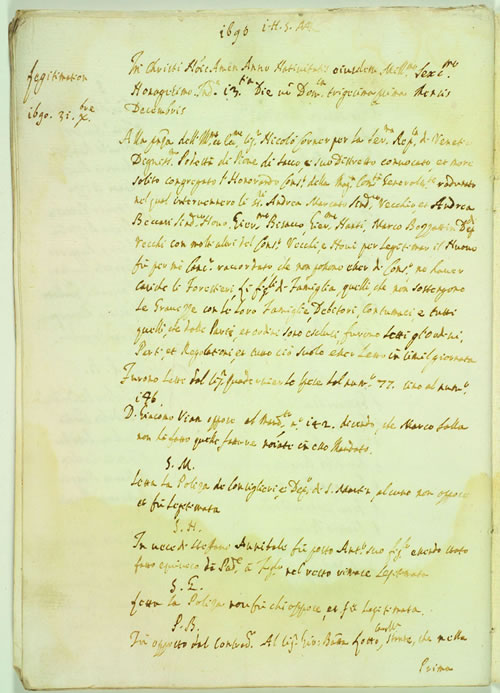 1690 I.H.S. M.
Legitimation
1690. 31. Xbre
In Christi Noĩe Amen Anno Nativitatis eiusdem Mill.mo Sexc.mo
Nonagesimo Ind.e 13. Die vo Dom.ca trigesima prima Mensis
Decembris
Alla pñza dell' Ill.mo et Ecc.mo Sig. Nicolò for la Ser.ma Rep.ca di Venetia
Degniss.mo Podestà di Piove di Sacco, e suo Distretto convocato et more
solito congregato l'Honorando Cons.o della Mag.ca Com.tà Generale redutato
nel qual intervennero li SS.ri Andrea Sind.co Vecchio et Andrea
Beccari Sind.co Novo, Gier.mo Besacco, Gier.mo Marco Dep.
Vecchi con molti altri del Cons.o Vecchi, e Novi per Legitimar il Nuovo
fù per me Canc.r raccordato che non possono esser di Cons.o ne haver
cariche li Forestieri, li figli di Famiglia, quelli, che non sostengono
le Gravezze con le loro Famiglie, Debitori, Contumaci e tutti
quelli, che dalle Parti, et ordini sono esclusi, furono letti gl'Ordini,
Parti, et Regolationi, et tutto ciò suole esser Letto in simil giornata
Furono Letti dal Sig. le spese dal num.o 77. sino al num.o
146.
D. Giacomo Vian oppose al Mand.to n.o 142. dicendo, che Marco Salla
non ha fatto quelle notate in esso Mandato.
S. M.
Letta la Poliza de Consiglieri, e Dep. di S. Martin, alcuno non oppose
et fù Legitimata
S. N.
In vece di Stefano Annibale fù posto Ant.o suo fig.o essendo stato
fatto equivoco dà Pad.e à figlio nel resto rimase Legitimata
S. E.
Letta la Poliza non fù chi oppose, et fù Legitimata.
P. B.
Fù opposto dal Al Sig. Gio: Batta che nella
Prima